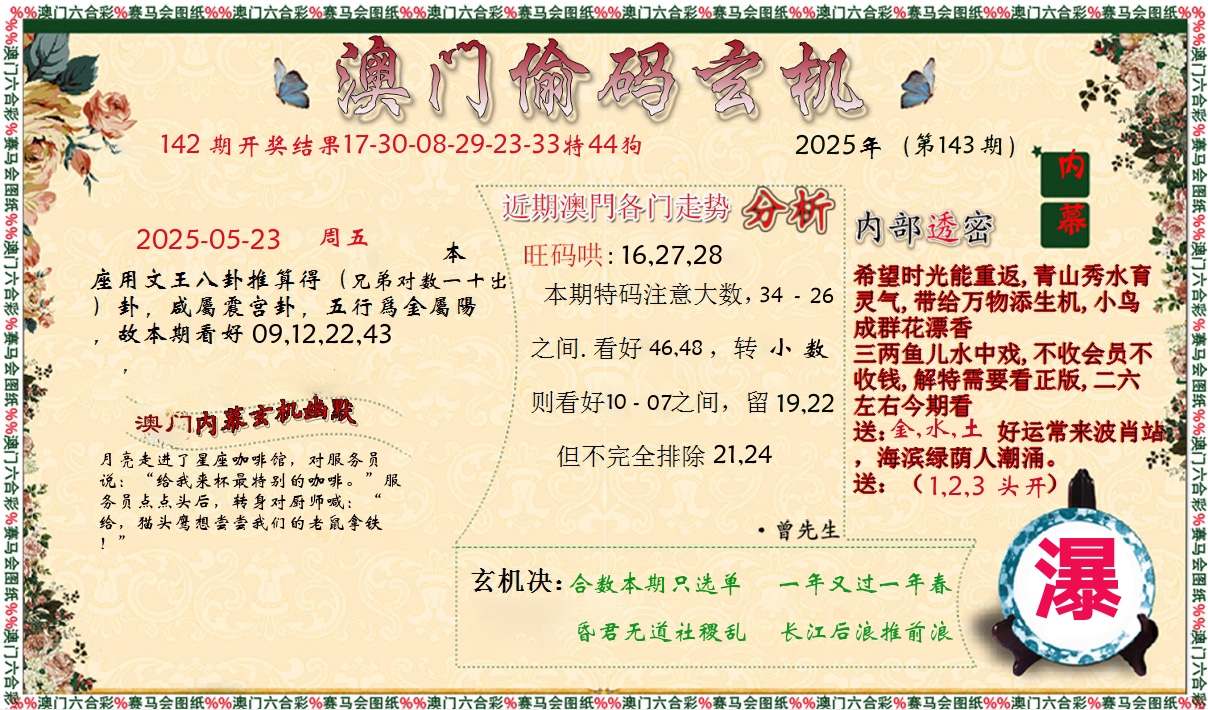 %%澳门六合彩%赛马会图纸%%澳门六合彩%赛马会图纸%%澳门六合彩%赛马会图纸%%澳门六合彩%赛马会图纸%%澳门六合彩%赛马会图纸%%澳门六合彩%赛马会图纸%%
澳门偷码玄机
142 期开奖结果17-30-08-29-23-33特44狗
2025年（第143 期）
内
幕
2025-05-23 周五
本
座用文王八卦推算得（兄弟对数一十出
）卦，咸屬震宫卦，五行爲金屬陽
，故本期看好 09,12,22,43
，
澳门内幕玄机幽默
月亮走进了星座咖啡馆，对服务员
说：“给我来杯最特别的咖啡。”服
务员点点头后，转身对厨师喊：“
给，猫头鹰想尝尝我们的老鼠拿铁
！”
近期澳門各门走势 分析
旺码哄: 16,27,28
本期特码注意大数, 34 - 26
之间. 看好 46,48 ，转 小 数
则看好10 - 07之间，留 19,22
但不完全排除 21,24
·曾先生
内部透密
希望时光能重返, 青山秀水育
灵气, 带给万物添生机, 小鸟
成群花漂香
三两鱼儿水中戏, 不收会员不
收钱, 解特需要看正版, 二六
左右今期看
送: 金,水,土 好运常来波肖站
，海滨绿荫人潮涌。
送: （1,2,3 头开）
玄机决: 合数本期只选单 一年又过一年春
昏君无道社稷乱 长江后浪推前浪
瀑
%%澳门六合彩%赛马会图纸%%澳门六合彩%赛马会图纸%%澳门六合彩%赛马会图纸%%澳门六合彩%赛马会图纸%%澳门六合彩%赛马会图纸%%澳门六合彩%赛马会图纸%%